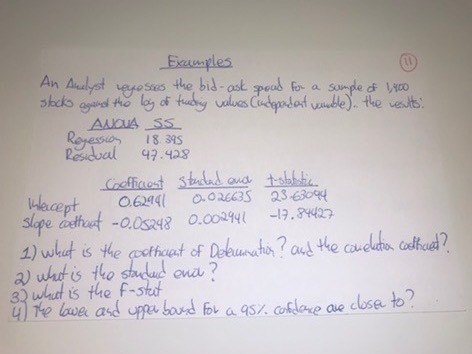 Examples
11
An Analyst regresses the bid-ask spread for a sample of 1,900
stocks against the log of trading values (independent variable). the results:
ANOVA SS
Regression 18.395
Residual 47.428
Coefficient Standard error t-statistic
Intercept 0.62941 0.026635 23.63094
Slope coefficient -0.05248 0.002941 -17.84427
1) what is the coefficient of Determination? and the correlation coefficient?
2) what is the standard error?
3) what is the F-stat
4) The lower and upper bound for a 95% confidence are closer to?